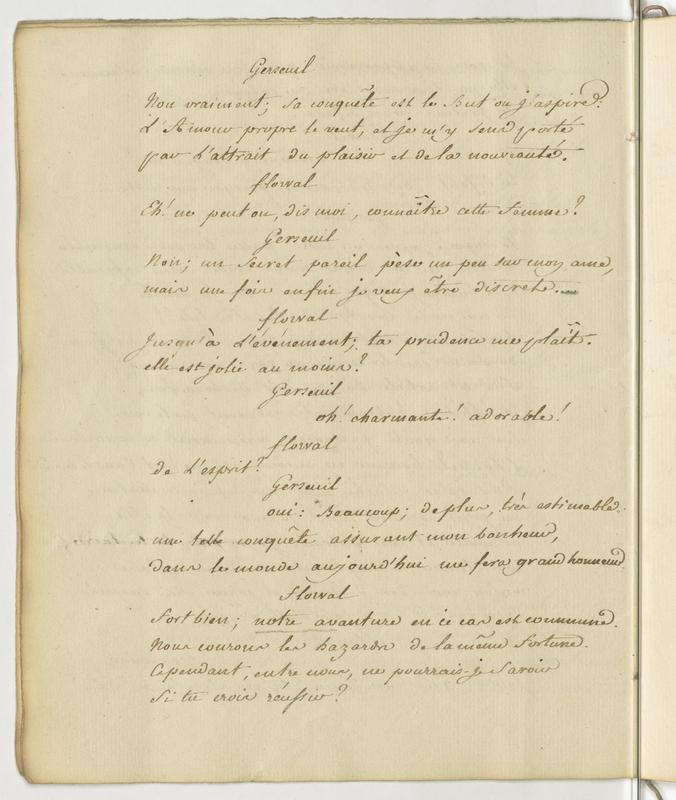 Gerseuil
Non vraiment; sa conquête est le But ou j'aspire:
L'Amour propre le veut, et je m'y sens porté
par L'attrait du plaisir et de la nouveauté.
florval
Eh! ne peut on, dis moi, connaître cette femme?
Gerseuil
Non; un Secret pareil pèse un peu sur mon ame,
mais une fois enfin je veux être discrete.
florval
Jusqu'à L'événement; ta prudence me plaît.
elle est jolie au moins?
Gerseuil
oh! charmante! adorable!
florval
de L'esprit?
Gerseuil
oui: Beaucoup; de plus, très estimable.
une telle conquête assurant mon bonheur,
dans le monde aujourd'hui me fera grand honneur
Florval
Fort bien; notre avanture en ce cas est commune.
Nous courons les hazards de la même fortune.
Cependant, entre nous, ne pourrais-je Savoir
Si tu crois réussir?